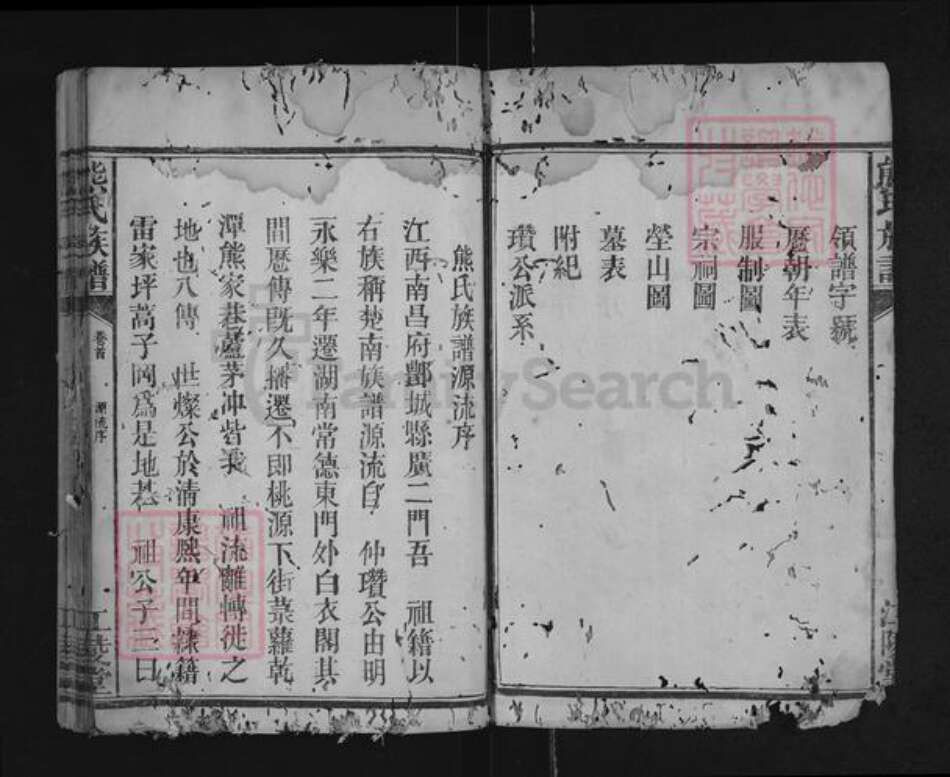 領譜字號
歷朝年表
服制圖
宗祠圖
塋山圖
墓表
附紀
瓚公派系
熊氏族譜源流序
江西南昌府酆城縣廣二門吾 祖籍以
右族稱楚南族譜源流自 仲瓚公由明
永樂二年遷湖南常德東門外白衣閣其
間歷傳旣久播遷不即桃源下街菜蘿乾
潭熊家巷蘆茅冲皆我 祖流離轉徙之
地也八傳 世燦公於清康熙年間隸籍
雷家坪蒿子岡爲是地基 祖公子三曰
熊氏族譜
卷首
源流序
江陵堂
熊氏族譜
江陵堂
FamilySearch